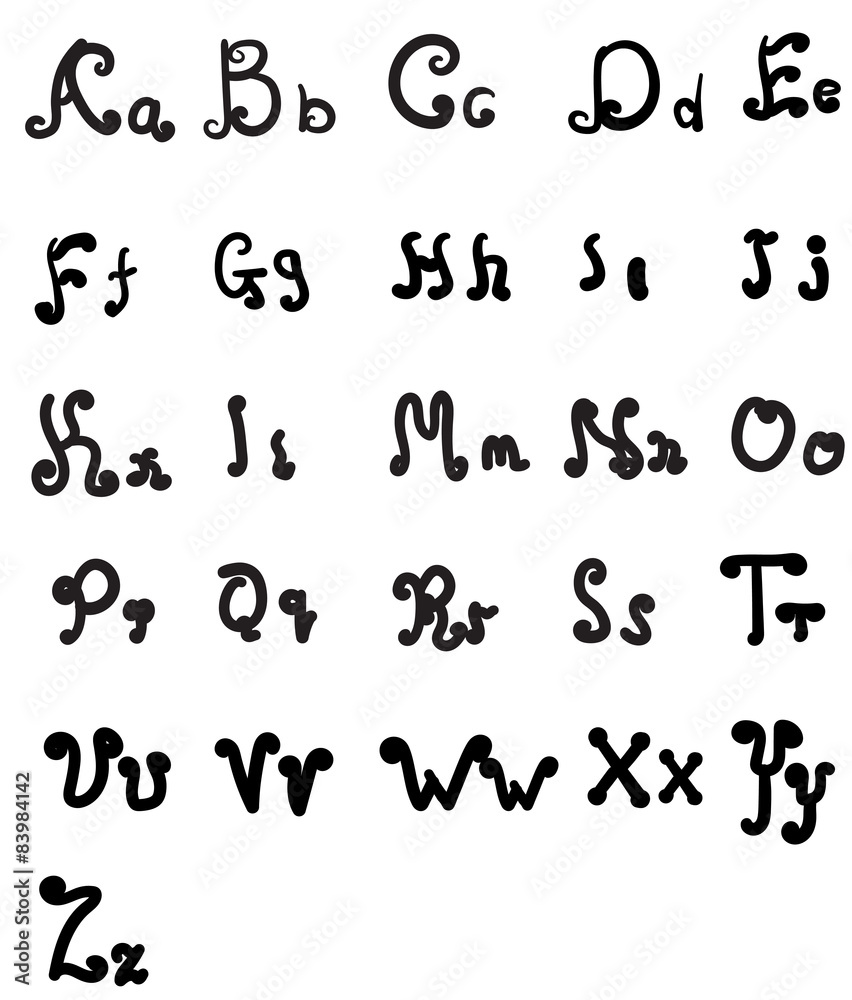 Aa Bb Cc Dd Ee
Ff Gg Hh Ii Jj
Kk Ll Mm Nn Oo
Pp Qq Rr Ss Tт
Uu Vv Ww Xx Yy
Zz
Adobe Stock | #83984142